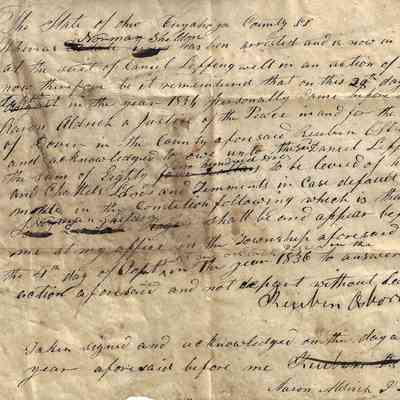 The State of Ohio Cuyahoga County SS
Whereas Norman Sheldon has been arrested and is now in
at the suit of Daniel Leffingwell in an action of
now therefore be it remembered that on this 29th day
in the year 1836 personally came before
Aaron Aldrich a Justice of the Peace in and for the
of Dover in the County aforesaid Reuben Osborn
and acknowledged to owe unto the sd Daniel Leff
the sum of Eighty to be levied of his
and Chattels Lands and Tenements in Case default
made in the Condition following which is that
shall be and appear bef
me at my office in the Township aforesaid
the day of Sept in the year 1836 to answer
action aforesaid and not depart without Lea
Reuben Osborn
Taken signed and acknowledged on the day a
year aforesaid before me Reuben
Aaron Aldrich J